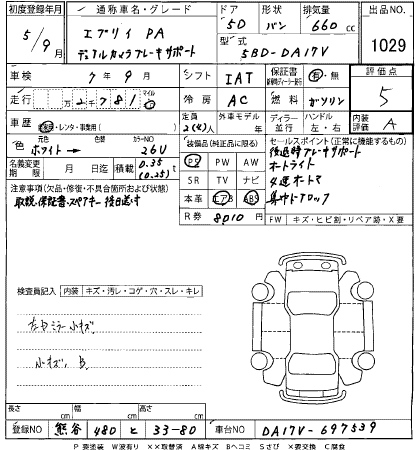 初度登録年月 通称車名・グレード ドア 形状 排気量 出品NO.
5/9月 エブリイ PA 5D バン 660cc 1029
デュアルカメラブレーキサポート 型式 5BD-DA17V
車検 7年9月 シフト IAT 保証書 有・無 評価点
走行 万2千781 マイル km 冷房 AC 燃料 ガソリン 5
車歴 自家・レンタ・事業用( ) 定員 2(4)人 外車モデル 年 ディーラー 並行 ハンドル 左・右 内装評価 A
色 元色 ホワイト → 色替 カラーNO 26U
装備品(純正品に限る) セールスポイント(正常に機能するもの)
名義変更期限 月 日 積載 0.35 (0.25)t
PS PW AW
SR TV ナビ
本革 エアB ABS
R券 8010円
後退時ブレーキサポート
オートライト
4速オートマ
集中ドアロック
注意事項(欠品・修復・不具合箇所および状態)
取説、保証書、スペアキー後日送り
FW キズ・ヒビ割・リペア跡・X要
検査員記入 内装 キズ・汚レ・コゲ・穴・スレ・キレ
左ドミラー小キズ
小キズ、B
長さ cm 幅 cm 高さ cm
登録NO 熊谷 480 と 33-80 車台NO DA17V-697539
P 要塗装 W波有り ××取替済 A線キズ Bヘコミ Sさび X要交換 C腐食